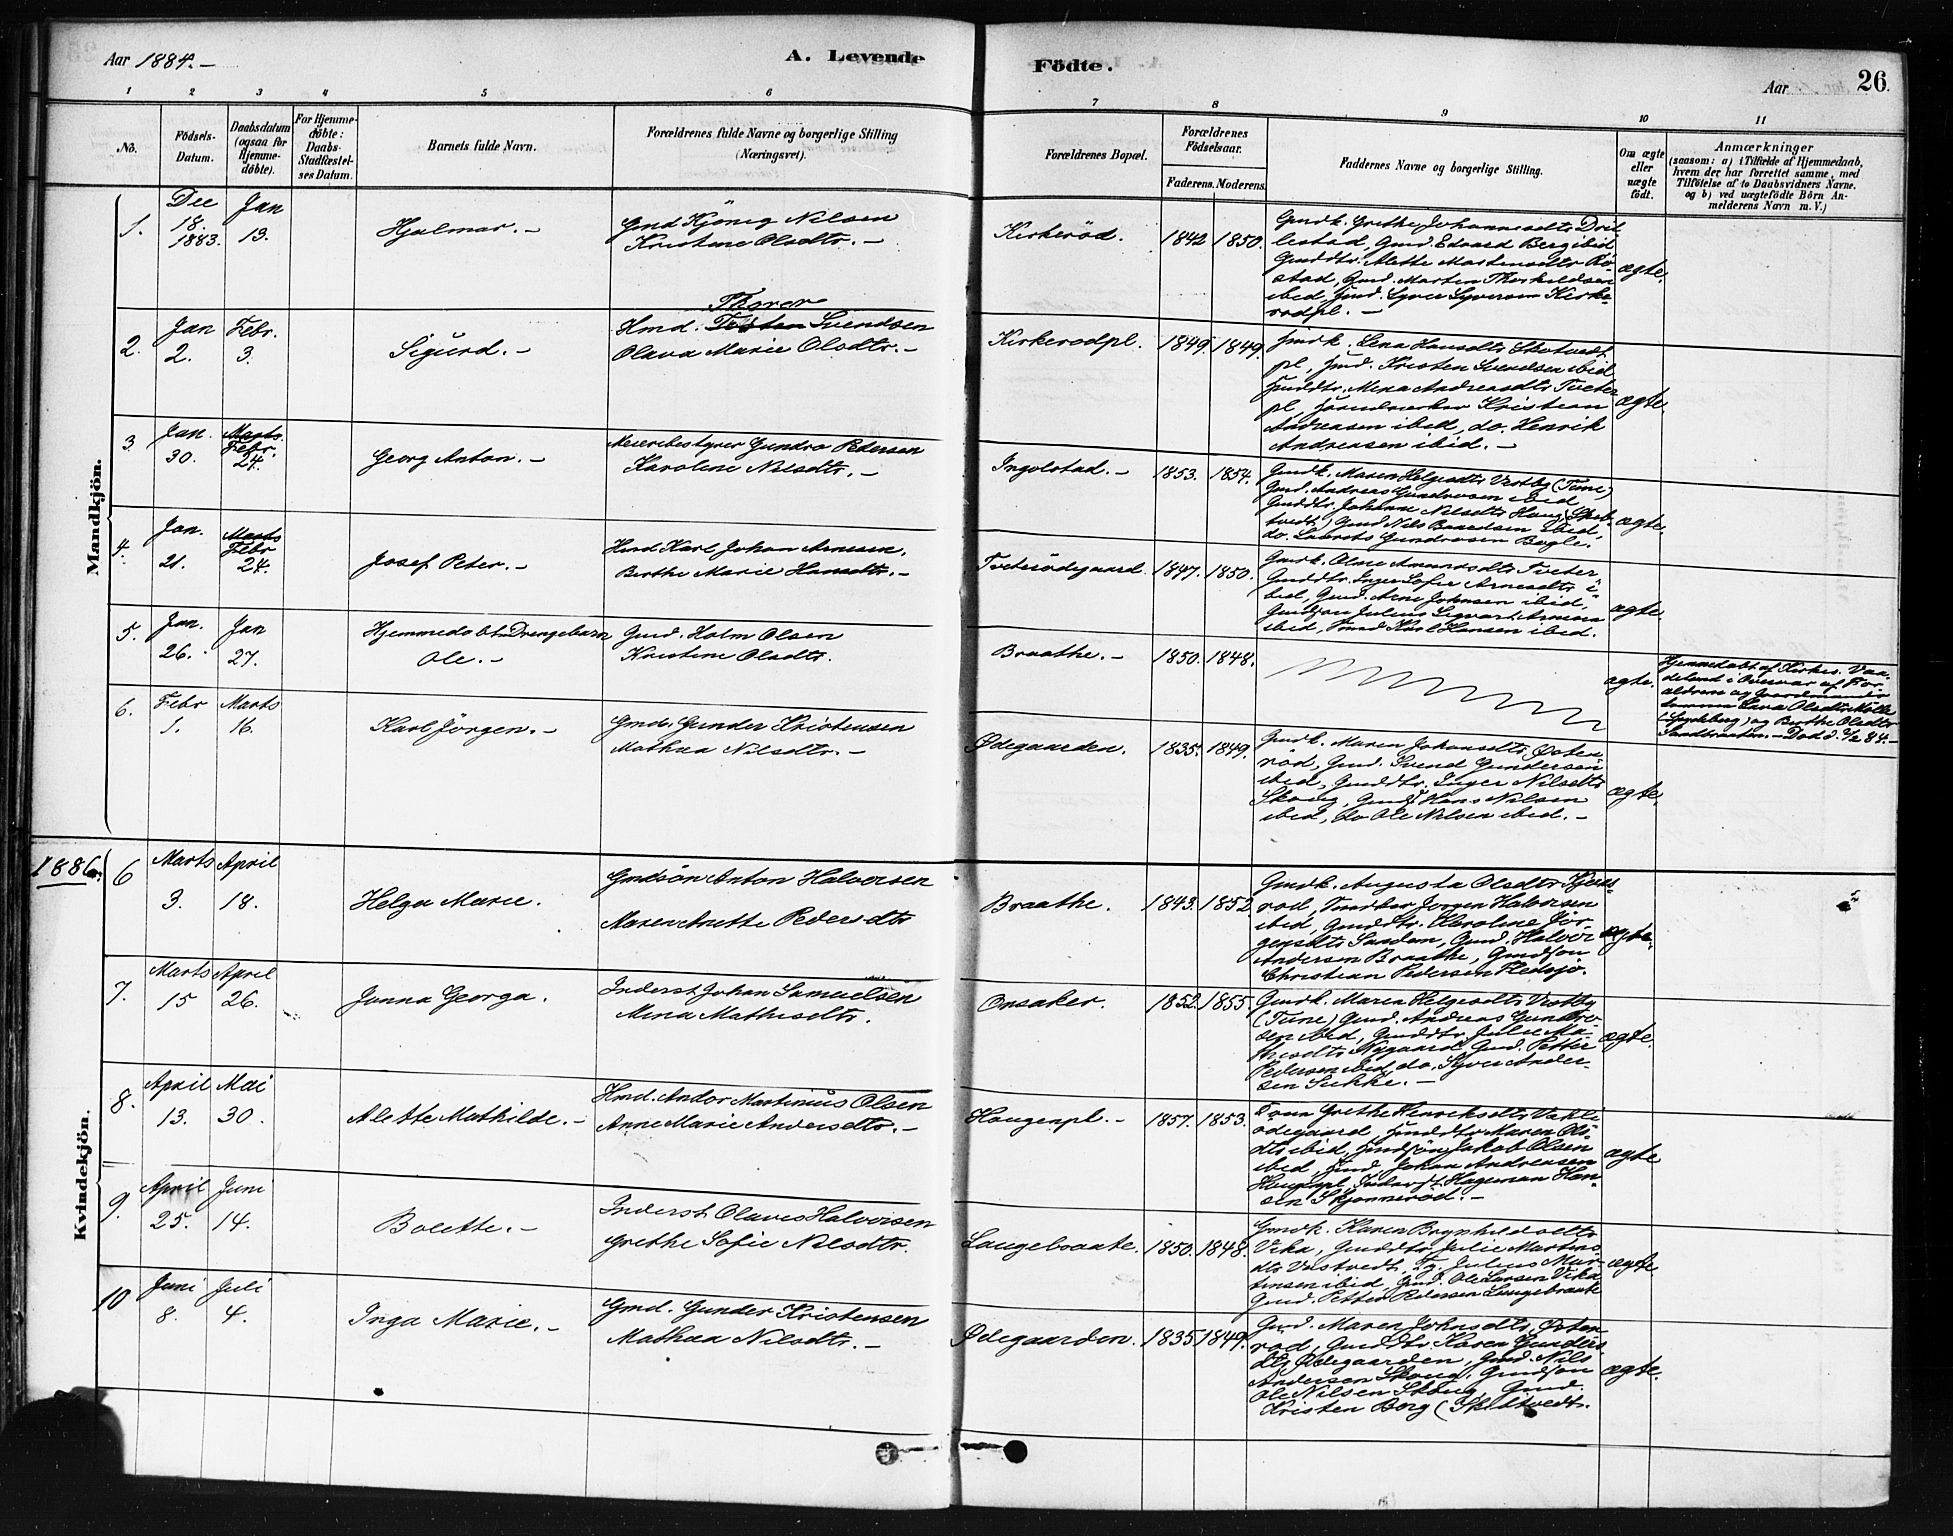 Aar 1884.-
A. Levende
Födte.
Aar
26.
1 2 3 4 5 6 7 8 9 10 11
No.
Födsels-
Datum.
Daabsdatum
(ogsaa for
Hjemme-
döbte).
For Hjemme-
döbte:
Daabs-
Stadfæstel-
ses Datum.
Barnets fulde Navn.
Forældrenes fulde Navne og borgerlige Stilling
(Næringsvei).
Forældrenes Bopæl.
Forældrenes
Födselsaar.
Faderens. Moderens.
Faddernes Navne og borgerlige Stilling.
Om ægte
eller
uægte
födt.
Anmærkninger
(saasom: a) i Tilfælde af Hjemmedaab,
hvem der har forrettet samme, med
Tilföielse af to Daabsvidners Navne.
og b) ved uægtefödte Börn An-
melderens Navn m. V.)
Mandkjön.
1.
Dec
18.
1883.
Jan
13.
Hjalmar.-
Gmd Kjönig Nilsen
Kristine Olsdtr.-
Kirkeröd.
1842 1850.
Gmdk. Grethe Johannesdtr Dril-
lestad, Gmd. Edvard Berg ibid
Gmddtr. Alette Mortensdtr Rö-
stad, Gmd. Morten Thorkildsen
ibid, Hmd. Syver Syversen Kirke-
rödpl.-
ægte.
2.
Jan
2.
Febr.
3.
Sigurd.-
Thorer
Hmd. Svendsen
Olava Marie Olsdtr.-
Kirkerodpl.
1849. 1849.
Hmdk. Lena Hansdtr Skotvedt
pl, Hmd. Kristen Svendsen ibid
Hmddtr. Mina Andreasdtr Tveter
pl, Kristian
Andreasen ibid, do. Henrik
Andreasen ibid.-
ægte.
3
Jan.
30.
Marts.
Febr.
24.
Georg Anton.-
Meieribestyrer Gundro Petersen
Karoline Nilsdtr.-
Ingolstad.-
1853. 1854.
Gmdk. Maren Helgesdtr Vestby (Tune)
Gmd. Andreas Gundrosen ibid,
Gmddtr. Johanne Nilsdtr Haug (Skib-
tvedt) Gmd Nils Baardsen ibid,
do. Laurits Gundrosen Bøgle.
ægte.
4.
Jan.
21.
Marts
Febr
24.
Josef Peter.-
Hmd Karl Johan Arnesen.
Berthe Marie Hansdtr.-
Tveterödegaard.
1847. 1850.
Gmdk. Oline Amundsdtr Tveter
Gmddtr. Inger Sofie Arnesdtr i-
bid, Gmd. Arne Johnsen ibid,
Gmdsön Julius Sigvart Arnesen
ibid, Karl Hansen ibid.
ægte.
5.
Jan.
26.
Jan
27.
Hjemmedöbt Drengebarn
Ole.-
Gmd. Holm Olsen
Kristine Olsdtr.
Braathe.-
1850. 1848.
ægte.
Hjemmedöbt af Kirkes.
i Overvær af For-
ældrene og
Olsdtr Mölle
(Spydeberg) og Berthe Olsdtr
Sandbraaten.- Död d. 2/2 84.-
6.
Febr
1.
Marts
16.
Karl Jörgen.-
Gmd. Gunder Kristensen
Mathea Nilsdtr.-
Ødegaarden.
1835. 1849.
Gmdk. Maren Johansdtr Østen-
röd, Gmd. Svend Gundersen
ibid, Gmddtr. Inger Nilsdtr
Skoug, Gmds Hans Nilsen
ibid, do Ole Nilsen ibid.-
ægte.
1886.
Kvindekjön.
6
Marts
3.
April
18.
Helga Marie.
Gmdsön Anton Halvorsen
Maren Anette Pedersdtr
Braathe.
1843. 1852
Gmdk. Augusta Olsdtr
röd, Jörgen Halvorsen
ibid, Gmddtr. Karoline Jör-
gensdtr Sandem, Gmd. Halvor
Andersen Braathe, Gmdsön
Christian Pedersen
ægte.
7.
Marts
15
April
26.
Janna Georga.
Inderst Johan Samuelsen
Mina Mathisdtr.
Onsaker.
1852. 1855.
Gmdk. Maren Helgesdtr Vestby
(Tune) Gmd. Andreas Gundro-
sen ibid, Gmddtr. Julie Ma-
thisdtr Nygaard, Gmd. Petter
Pedersen ibid, do. Syver Ander-
sen Sukke.-
ægte.
8.
April
13.
Mai
30.
Alette Mathilde.-
Hmd. Andor Martinius Olsen
Anne Marie Andersdtr.-
Haugenpl.-
1857. 1853.
Grethe Henriksdtr
ödegaard, Hmddtr Maren Ols-
dtr ibid, Hmdsön Jakob Olsen
ibid, Hmd. Johan Andreasen
Haugenpl, Inderst Hageman Han-
sen Skjönneröd.-
ægte
9.
April
25.
Juni
14.
Bolette.-
Inderst Olaves Halvorsen
Grethe Sofie Nilsdtr.
Langebraate.
1850. 1848.
Gmdk. Karen Brynhildsdtr
Vika, Gmddtr Julie Martins-
dtr Vestvedt, Tg. Julius Mar-
tinsen ibid, Gmd. Ole Larsen Vika
Gmd. Petter Pedersen Langebraate
ægte.
10
Juni
8.
Juli
4.
Inga Marie.-
Gmd. Gunder Kristensen
Mathea Nilsdtr.-
Ødegaarden.
1835 1849.
Gmd. Maren Johnsdtr Østen-
röd, Gmddtr. Karen Gunders-
dtr Ødegaarden, Gmd. Nils
Andersen Skoug, Gmdsön
Ole Nilsen Skoug, Gmd.
Kristen Berg (Skibtvedt.
ægte.